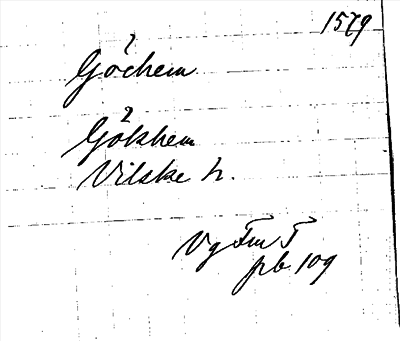 1579
Göchem
Gökhem
Vilske h.
Vg Fm T
pb 109